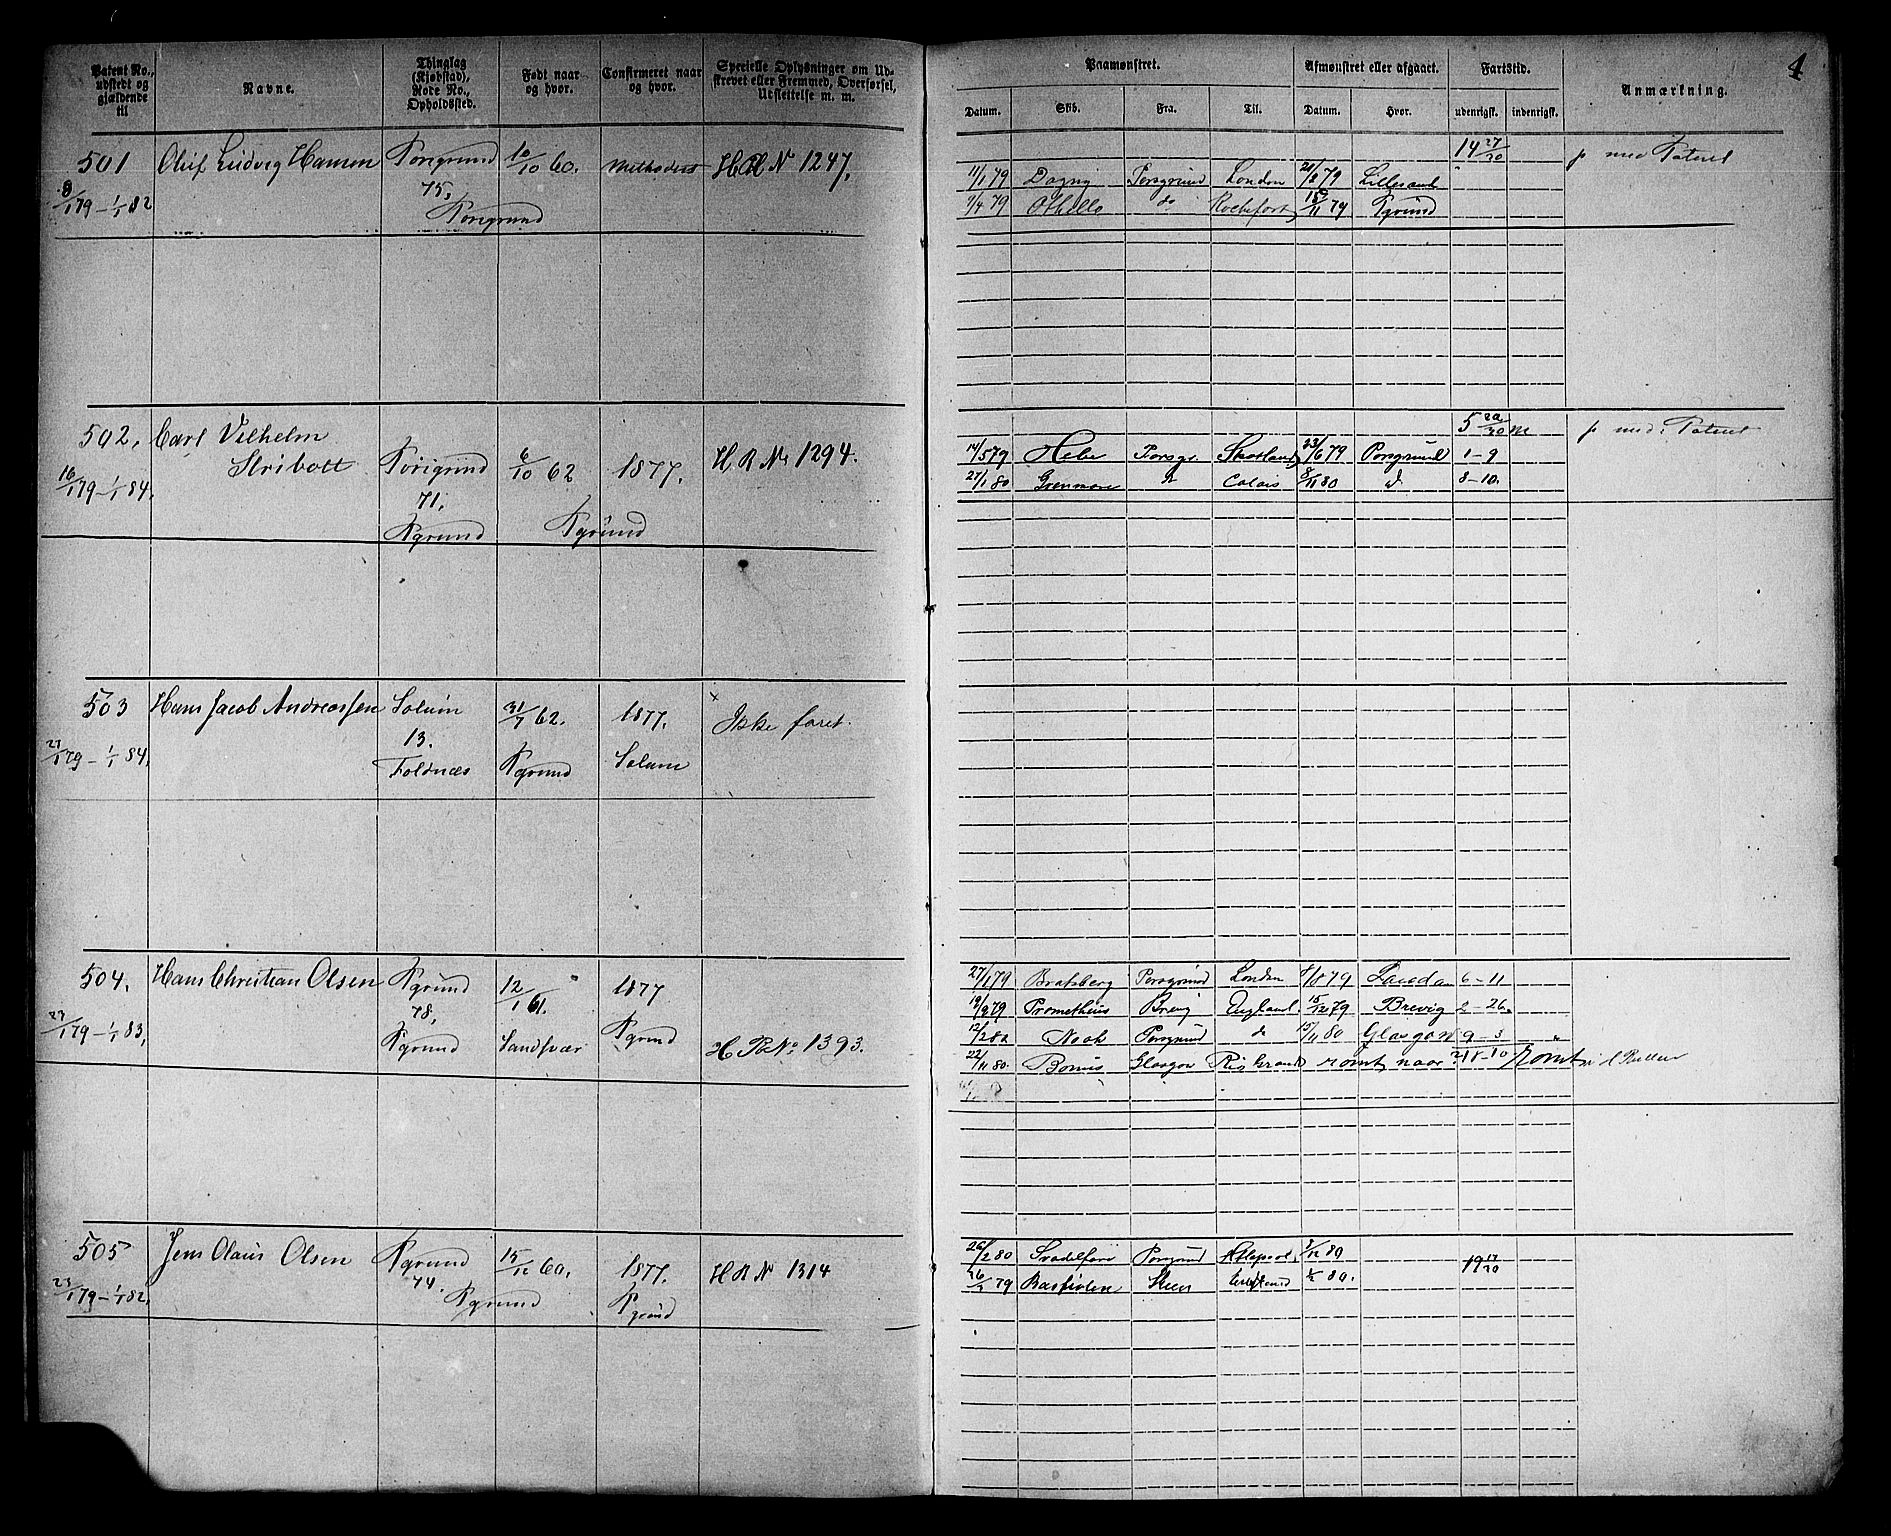 Patent No., udstedt og gjældende til
Navne.
Thinglag (Kjøbstad), Rode No., Opholdssted.
Født naar og hvor.
Confirmeret naar og hvor.
Specielle Oplysninger om Udskrevet eller Fremmed, Overførsel, Udslettelse m. m.
Paamønstret.
Afmønstret eller afgaaet.
Fartstid.
Anmærkning.
4
Datum. Skib. Fra. Til. Datum. Hvor. udenrigsk. indenrigsk.
501 Oluf Ludvig Hansen Porsgrund 10/10 60. Methodist H R N 1247.
75,
8/1 79 – 1/1 82 Porsgrund
14 27/30 p med Patent
11/1 79 Dagny Porsgrund London 79 Lillesand
7/4 79 Othello do Rochefort 15/11 79 Pgrund
502, Carl Vilhelm
Stribolt Porsgrund 6/10 62 1877. H R N 1294.
16/1 79 – 1/1 84. 71.
Pgrund Pgrund
5 20/30 m p med Patent
14/5 79 Hebe Porsgr Skotland 23/6 79 Porsgrund 1–9
27/1 80 Grenmar Calais 8/11 80 d 8–10.
503 Hans Jacob Andreassen Solum 31/7 62. 1877. x Ikke faret.
13.
27/1 79 – 1/1 84. Foldnæs Pgrund Solum
504. Hans Christian Olsen Pgrund 12/1 61. 1877
78,
27/1 79 – 1/1 83, Pgrund Sandsvær Pgrund H R No 1393.
27/1 79 Bratsberg Porsgrund London 1/8 79 6–11
19/9 79 Prometheus Brevig England 15/12 79 Brevig 2–26.
12/2 80 Noah Porsgrund do 15/11 80 Glasgow 9–3 "
22/11 80. Bonus Glasgow Rio Grande rømt naar ? Rømt
505 Jens Claus Olsen Pgrund 15/12 60. 1877. H R N 1314
74.
23/1 79 – 1/1 82, Pgrund Pgrund
26/2 80 Svadilfare Porsgrund 80 19 17/30
79 Bastiolen Skien 80.